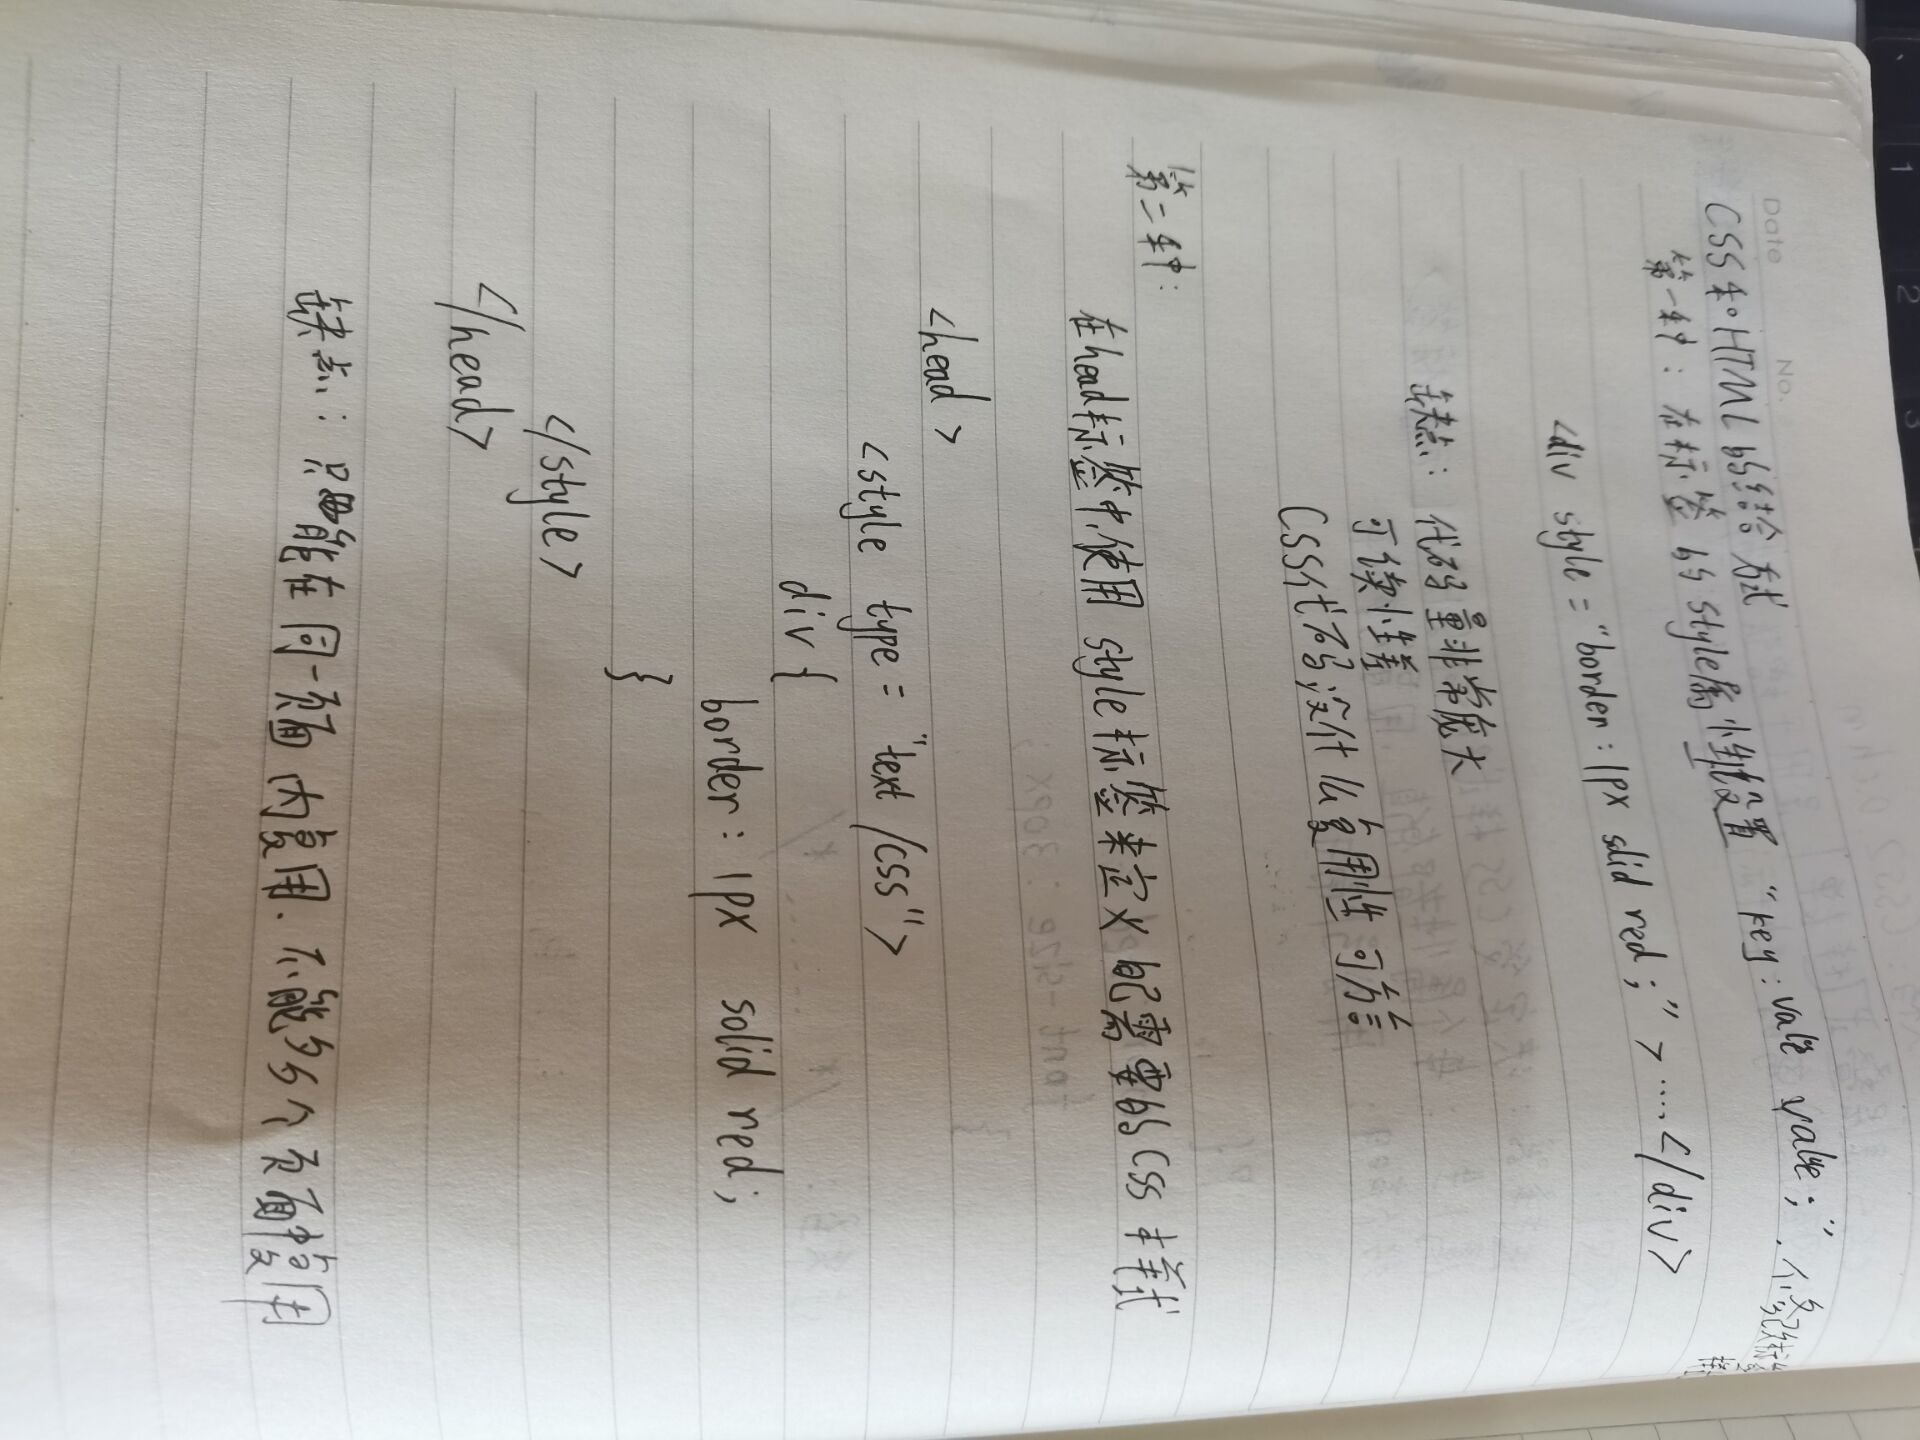 Date No.
CSS和HTML的结合方式
第一种：在标签的style属性上设置 "key: value value;", 修改标签
样
<div style = "border : 1px solid red ; " > .... </div>
缺点： 代码量非常庞大
可读性差
CSS代码没什么复用性可言
第二种：
在head标签中,使用 style标签来定义 的需要的 CSS 样式
<head>
<style type = "text /css">
div {
border : 1px solid red ;
}
</style>
</head>
缺点： 只能在同一页面内复用. 不能多个页面中复用
1
2
3